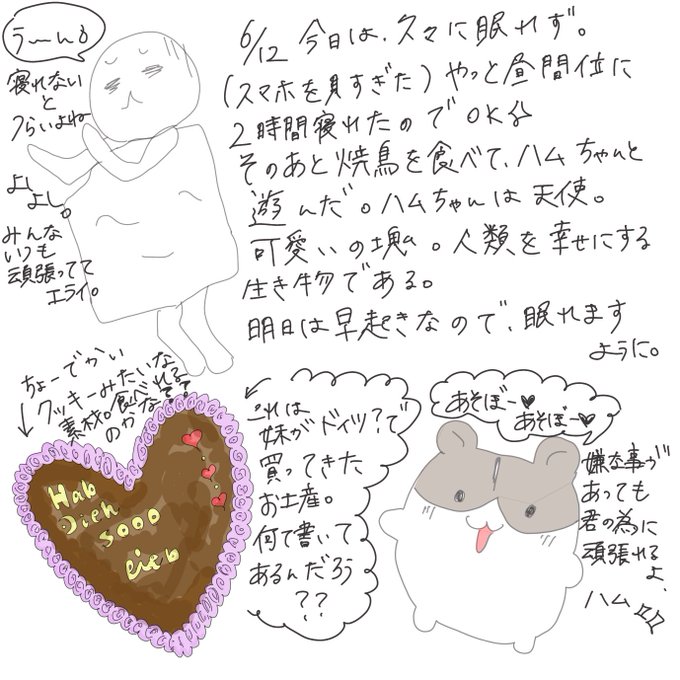 う〜んも
寝れない
と
つらいよね
よし
よし。
みんな
いつも
頑張ってて
エライ。
6/12 今日は、久々に眠れず。
(スマホを見すぎた)やっと昼間位に
2時間寝れたのでOK☆
そのあと焼鳥を食べて、ハムちゃんと
遊んだ。ハムちゃんは天使。
可愛いの塊。人類を幸せにする
生き物である。
明日は早起きなので、眠れます
ように。
ちょーでかい
クッキーみたいな
素材。食べれる
のかな??
Hab
Dich
sooo
lieb
これは
妹がドイツ?で
買ってきた
お土産。
何て書いて
あるんだろう
??
あそぼー♥
あそぼー♥
嫌な事が
あっても
君の為に
頑張れる
よ、
ハム